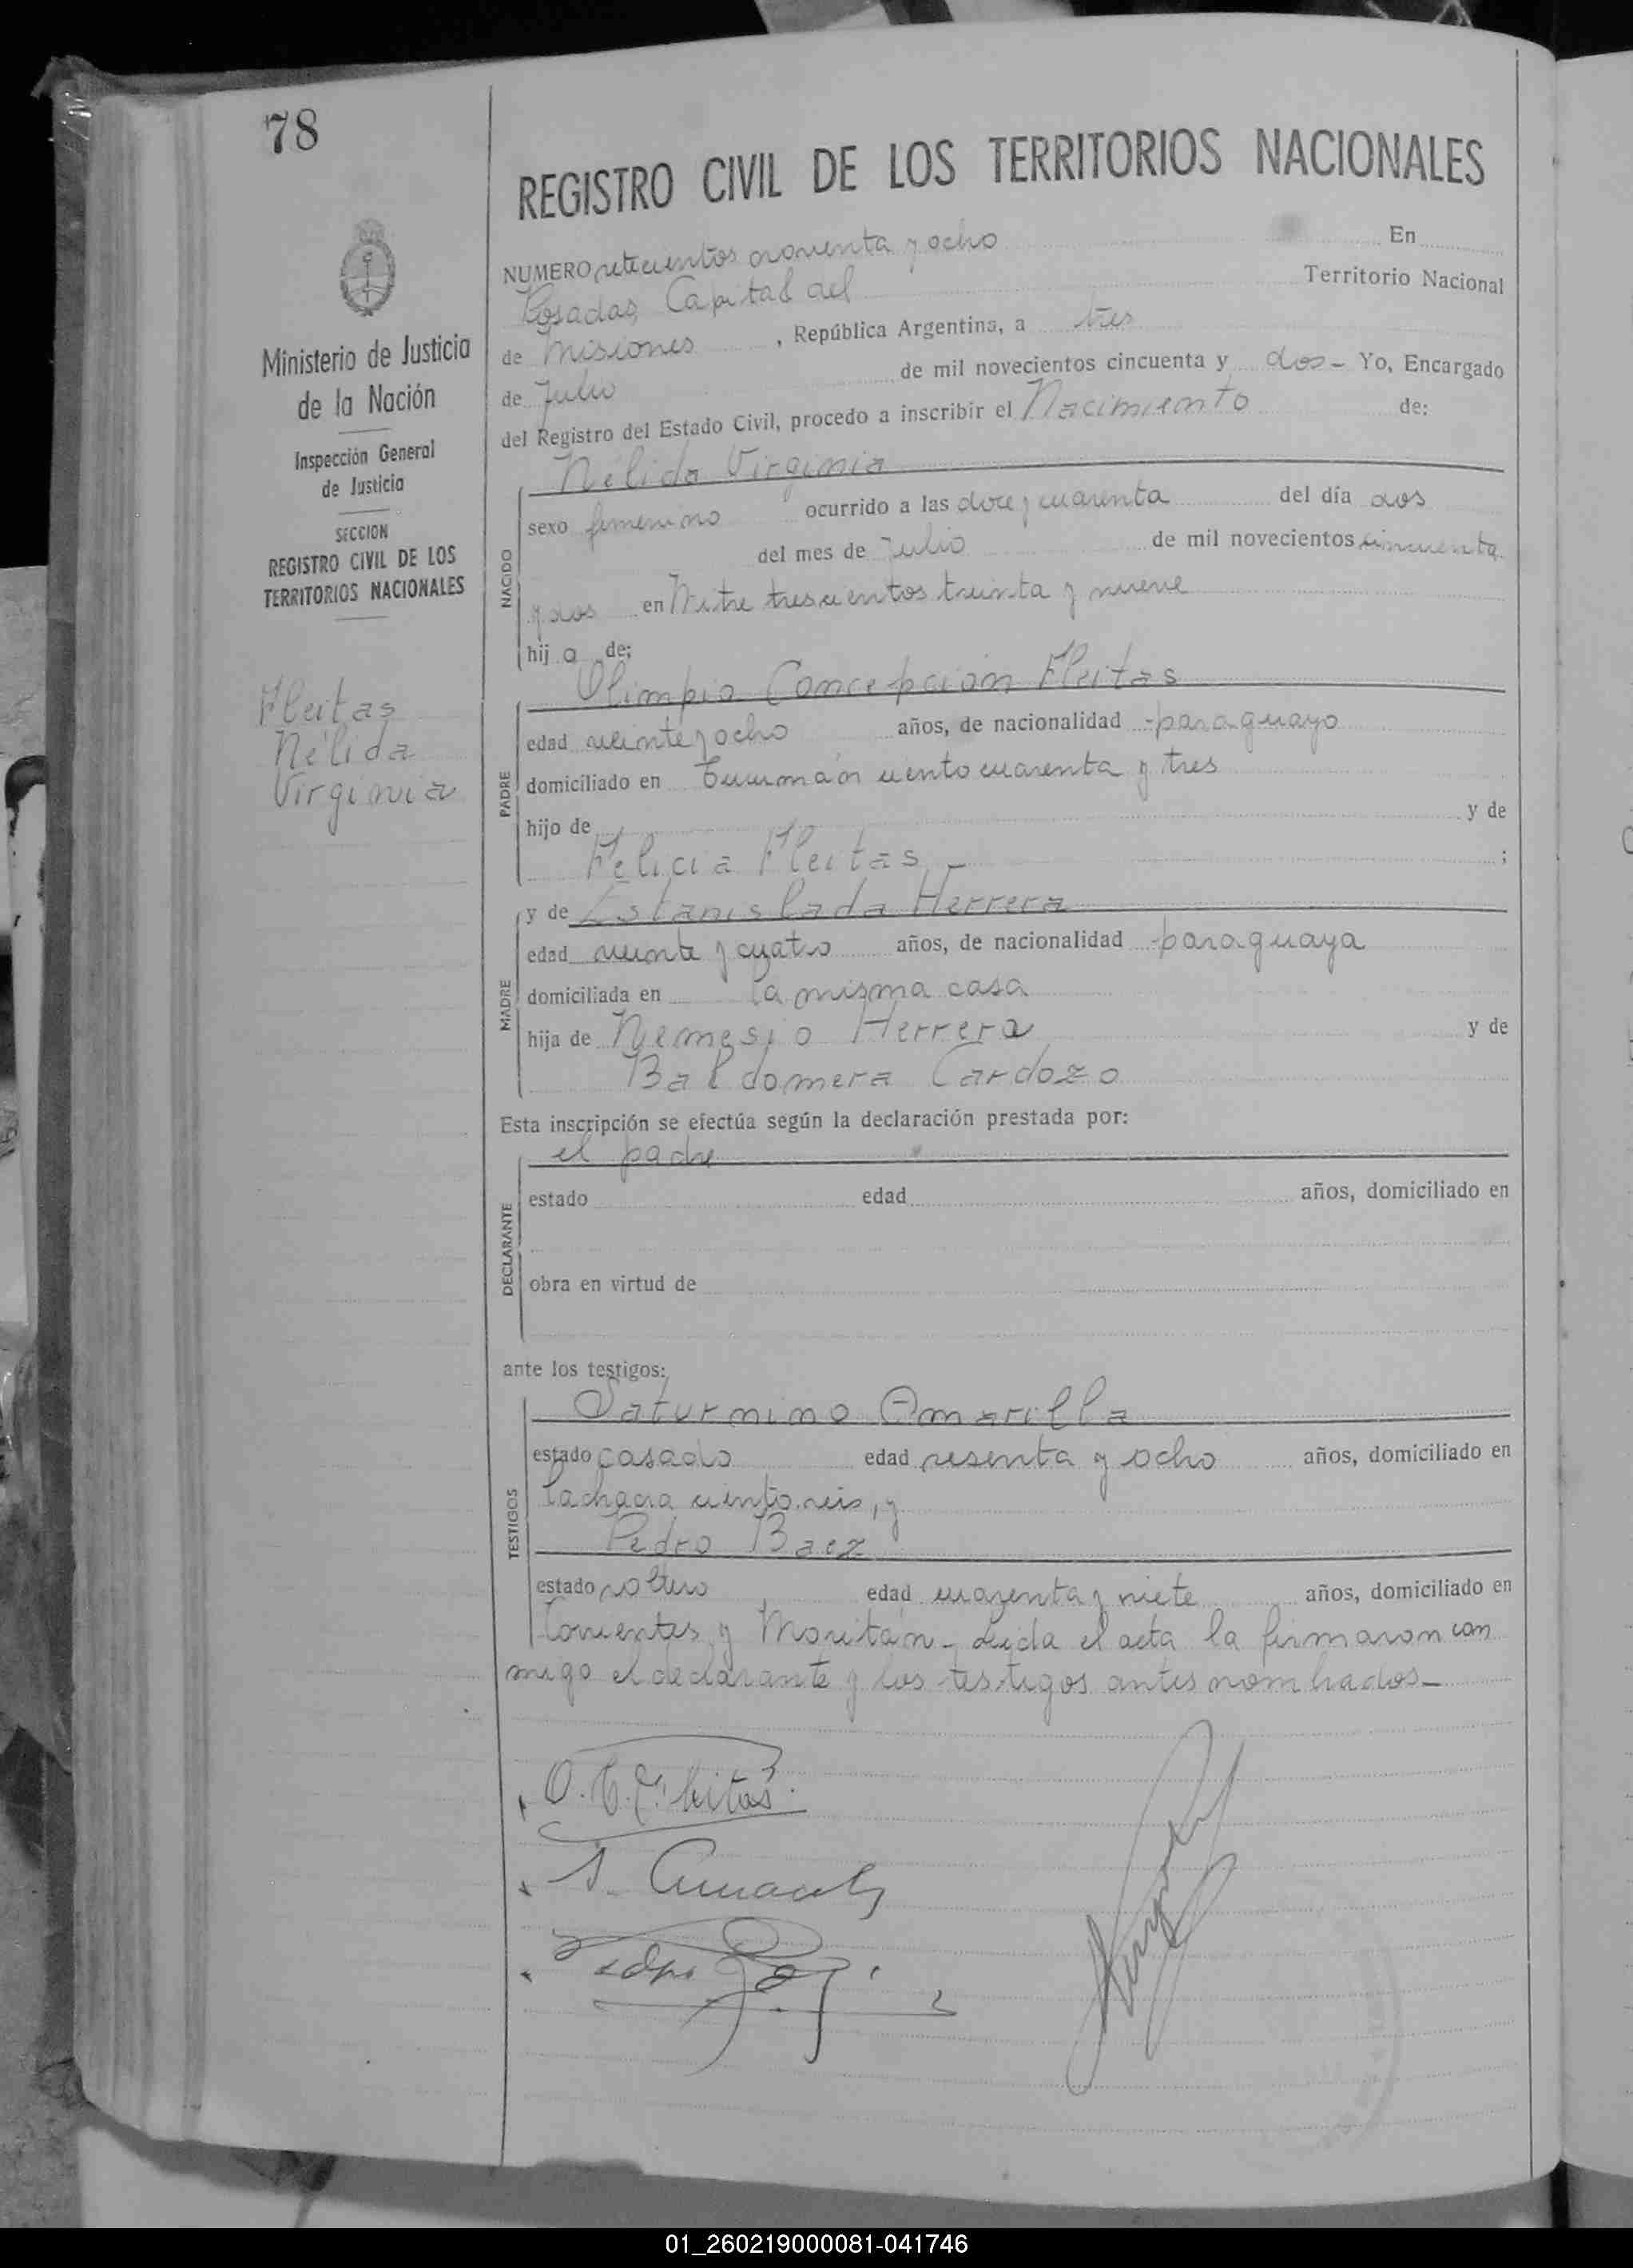 78
REGISTRO CIVIL DE LOS TERRITORIOS NACIONALES
NUMERO setecientos noventa y ocho En
Posadas, Capital del Territorio Nacional
de Misiones, República Argentina, a tres
de Julio de mil novecientos cincuenta y dos - Yo, Encargado
del Registro del Estado Civil, procedo a inscribir el Nacimiento de:
Nélida Virginia
sexo femenino ocurrido a las doce y cuarenta del día dos
del mes de Julio de mil novecientos cincuenta
y dos en Mitre trescientos treinta y nueve
hija de:
Olimpio Concepción Fleitas
edad veinte y ocho años, de nacionalidad paraguayo
domiciliado en Tucumán ciento cuarenta y tres
hijo de y de
Felicia Fleitas - ;
y de Estanislada Herrera
edad veinte y cuatro años, de nacionalidad paraguaya
domiciliada en la misma casa
hija de Nemesio Herrera y de
Baldomera Cardozo
Esta inscripción se efectúa según la declaración prestada por:
el padre
estado edad años, domiciliado en
obra en virtud de
ante los testigos:
Saturnino Amarilla
estado casado edad sesenta y ocho años, domiciliado en
la chacra ciento seis, y
Pedro Baez
estado soltero edad cuarenta y siete años, domiciliado en
Corrientes y Moritán - Leida el acta la firmaron con
migo el declarante y los testigos antes nombrados -
O. C. Fleitas
NACIDO
PADRE
MADRE
DECLARANTE
TESTIGOS
Ministerio de Justicia
de la Nación
Inspección General
de Justicia
SECCION
REGISTRO CIVIL DE LOS
TERRITORIOS NACIONALES
Fleitas
Nélida
Virginia
01_260219000081-041746